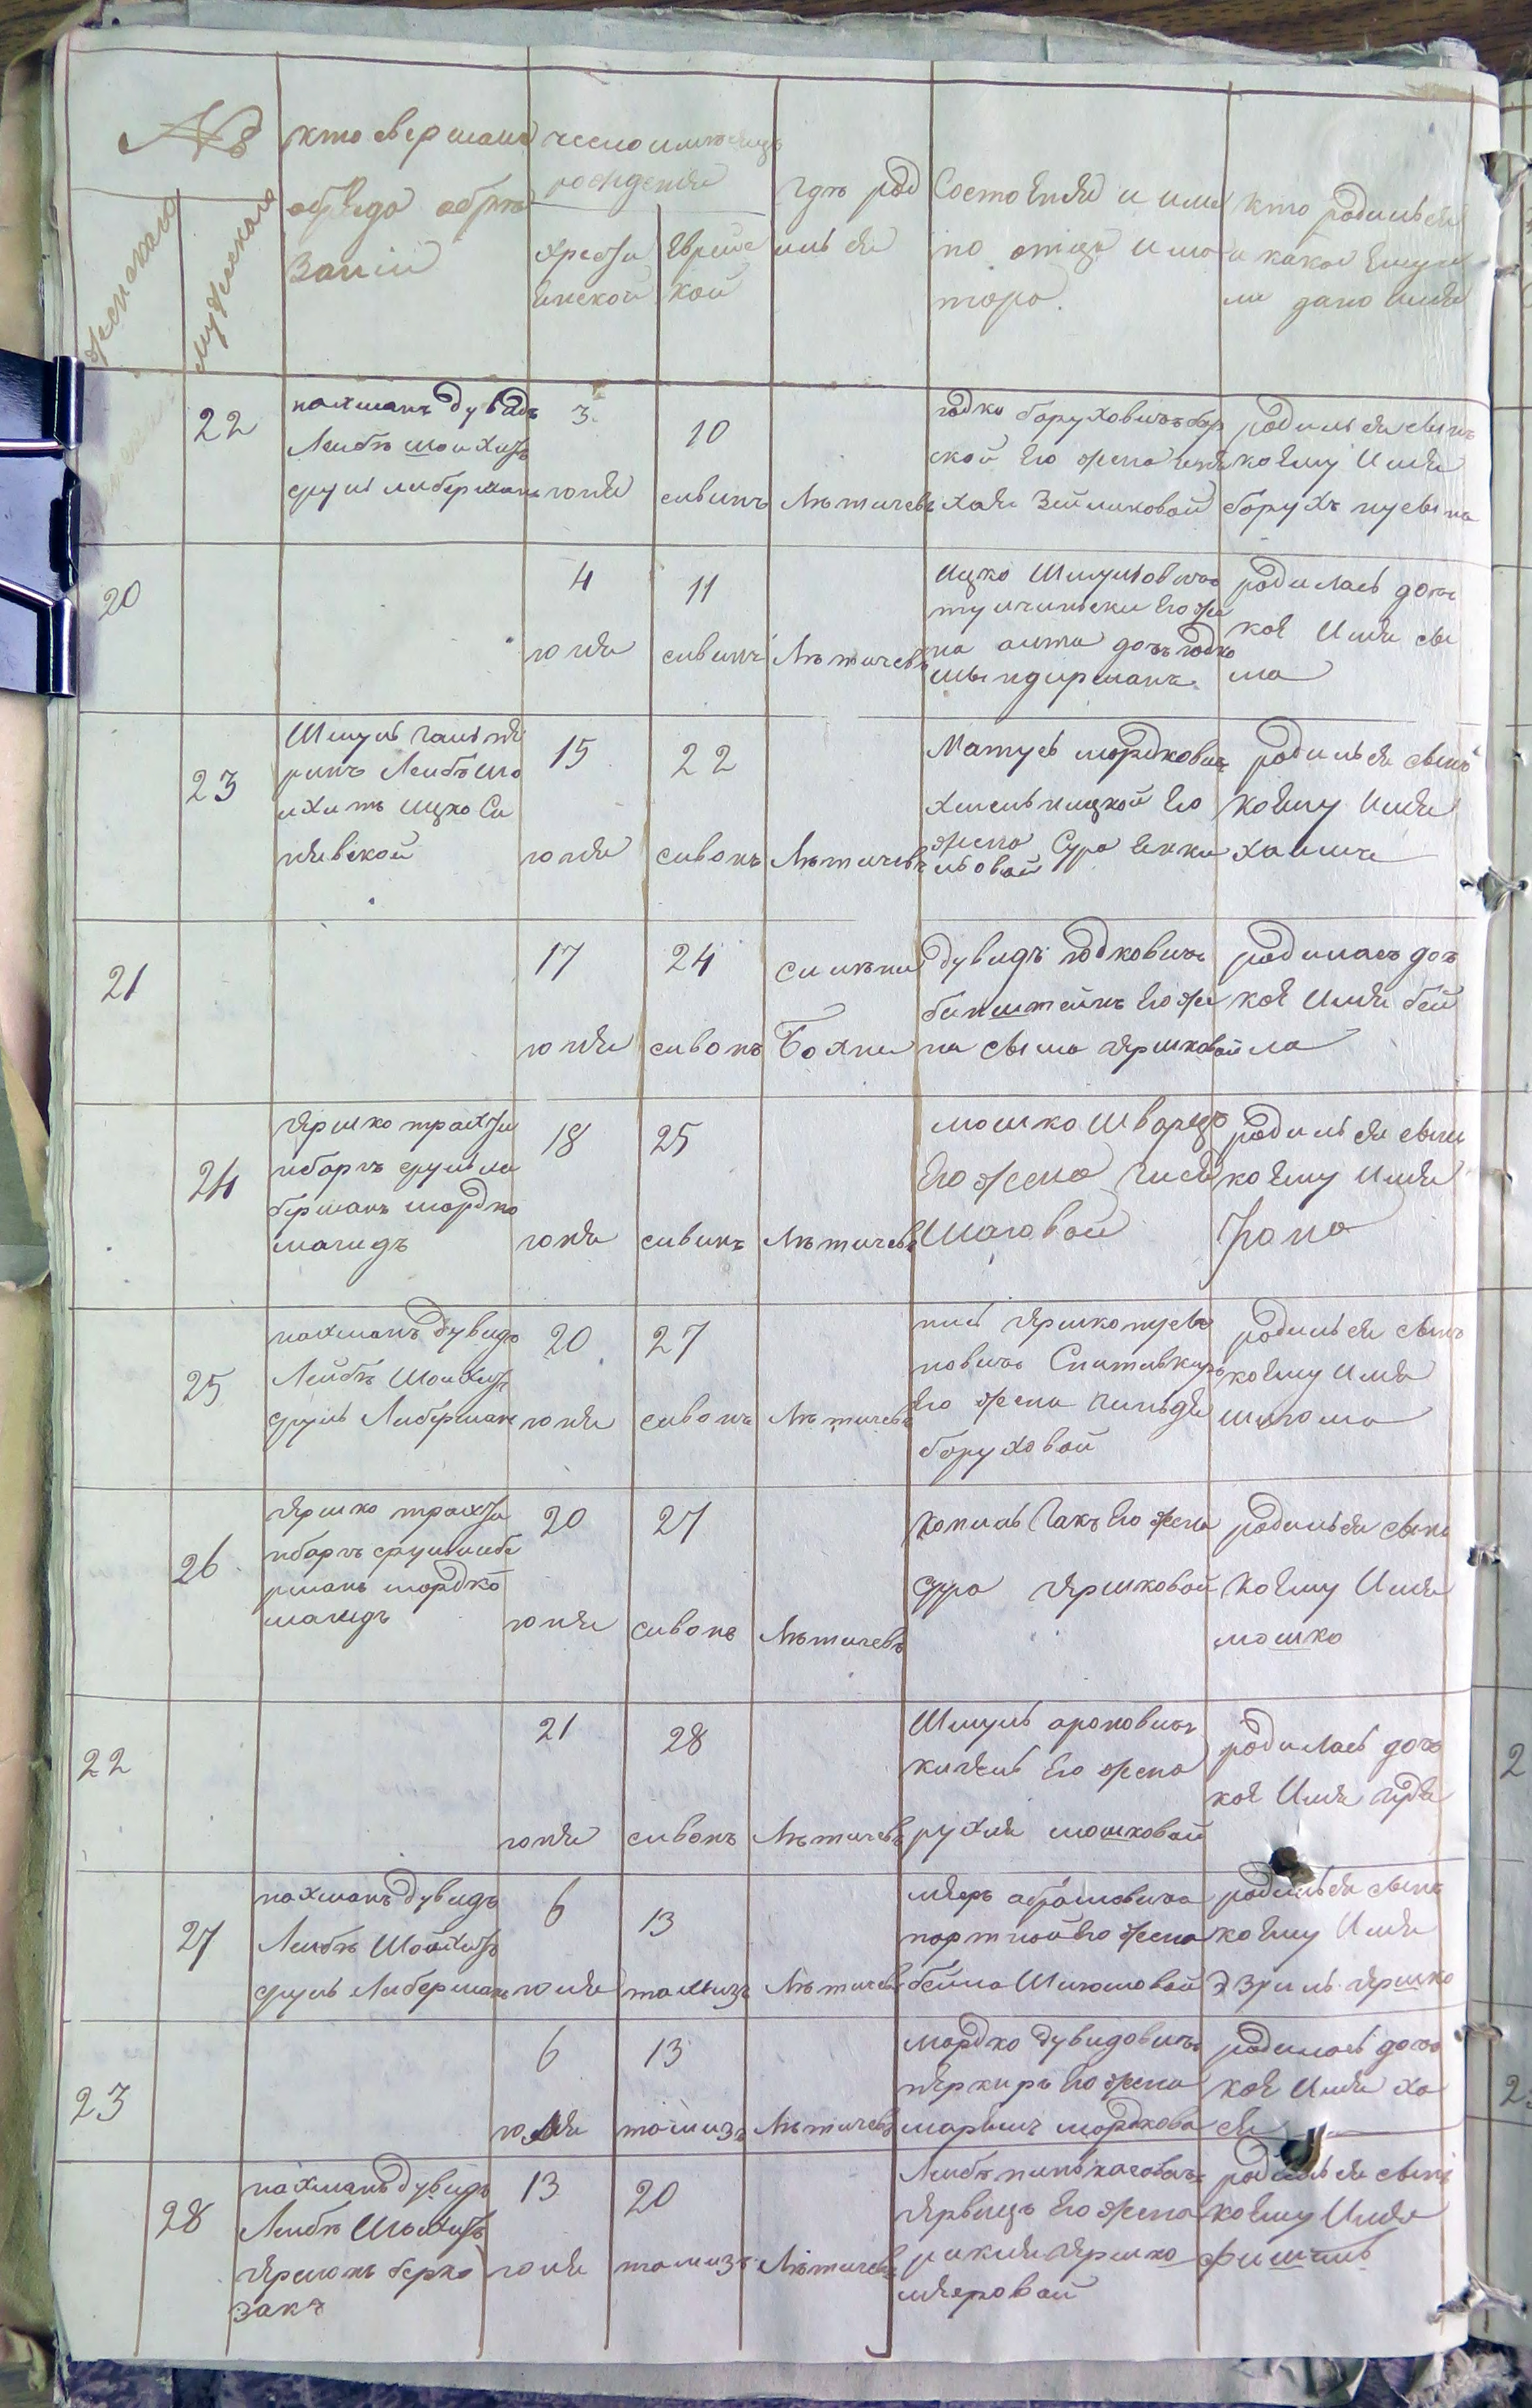 №
женскаго
мужескаго
кто совершалъ
обряда обрѣ
занiи
число и мѣсяцъ
рождения
христи
енской
Еврейс
кой
гдѣ род
ился
Состоянiя и имя
по отцѣ и мо
тора.
кто родился
и какое Ему и
ли дано имя
22
нохманъ дувидъ
Лейбъ шойхитъ
сруль либерманъ
3
юня
10
сивинъ
Лѣтичевъ
юдко боруховичъ бор
ской Его жена
хая Зейликовой
родился сынъ
коему имя
борухъ нусына
20
4
юня
11
сивинъ
Лѣтичевъ
ицко Шмулiовичъ
тучински Его же
на анта дочъ юдко
шындирманъ
родилась дочь
коя имя сы
ма
23
Шмуль гальпе
ринъ Лейбъ шо
ихитъ ицко Си
нявской
15
юня
22
сивонъ
Лѣтичевъ
Матусь мордковичъ
хмельницкой Его
жена Сура Енке
льовой
родился сынъ
коему имя
хаимъ
21
17
юня
24
сивонъ
Божни
дувидъ юдковичъ
бинштейнъ Его же
на сыма яршковой
родилась доч
коя имя бей
ла
24
яршко трахти
нборгъ сруль ли
берманъ мордко
магидъ
18
юня
25
сивинъ
Лѣтичевъ
мошко шворцъ
Его жена гися
Шаговой
родился сынъ
коему имя
25
нохманъ дувидъ
Лейбъ шойхитъ
сруль Либерманъ
20
юня
27
сивонъ
Лѣтичевъ
яршко нусы
новичъ Спитивкеръ
Его жена гильдя
боруховой
родился сынъ
коему имя
шлюма
26
яршко трахти
нборгъ сруль либе
рманъ мордко
магидъ
20
юня
27
сивонъ
Лѣтичевъ
копиль Гакъ Его жена
сура яршковой
родился сынъ
коему имя
мошко
22
21
юня
28
сивонъ
Лѣтичевъ
Шмуль ароновичъ
кигель Его жена
рухля мошковой
родилась дочь
коя имя гудя
27
нохманъ дувидъ
Лейбъ Шойхитъ
сруль Либерманъ
6
юля
13
томизъ
Лѣтичевъ
меяръ абрамовичъ
портной Его жена
бейла Шлюмовой
родился сынъ
коему имя
Эзриль яршко
23
6
юля
13
томизъ
Лѣтичевъ
мордко дувидовичъ
пяркиръ Его жена
марымъ мордкова
родилась дочь
коя имя ха
ся
28
нохманъ дувидъ
Лейбъ Шойхитъ
ярмонъ берко
закъ
13
юля
20
томизъ
Лѣтичевъ
Лейбъ пинькасовичъ
ярвицъ Его жена
рикля яршко
меяровой
родился сынъ
коему имя
фишиль